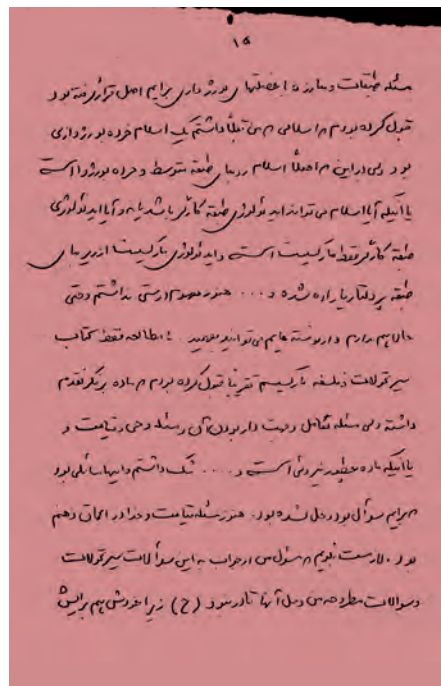 ۱۵
مسئله طبقات و مبارزه با خصلتهای بورژوازی برایم اصل قرار گرفته بود
قبول کرده بودم که اسلامی که من قبلاً داشتم یک اسلام خرده بورژوازی
بود ولی در این که اصلاً اسلام روبنای طبقه متوسط و خرده بورژوا است
یا اینکه آیا اسلام می‌تواند ایدئولوژی طبقه کارگر باشد یا نه و آیا ایدئولوژی
طبقه کارگر فقط مارکسیست است و ایدئولوژی مارکسیست از زیربنای
طبقه پرولتاریا زاده شده و ... هنوز درستی نداشتم وحتی
حالا هم ندارم و از نوشته هایم می‌توانید بفهمید. با مطالعه فقط کتاب
سیر تحولات فلسفه مارکسیسم تقریبا قبول کرده بودم که ماده بر فکر تقدم
داشته ولی مسئله تکامل وجهت دار بودن آن و مسئله وحی و قیامت و
یا اینکه ماده چطور است و .... شک داشتم و اینها مسائلی بود
که برایم سوأل بود و حل نشده بود. هنوز مسئله قیامت و خدا در اعماق ذهنم
بود. لازمست بگویم که مسئول من از جواب به این سوألات سیر تحولات
و سوالات مطروحه من و حل آنها قادر نبود (ح) زیرا خودش هم برایش